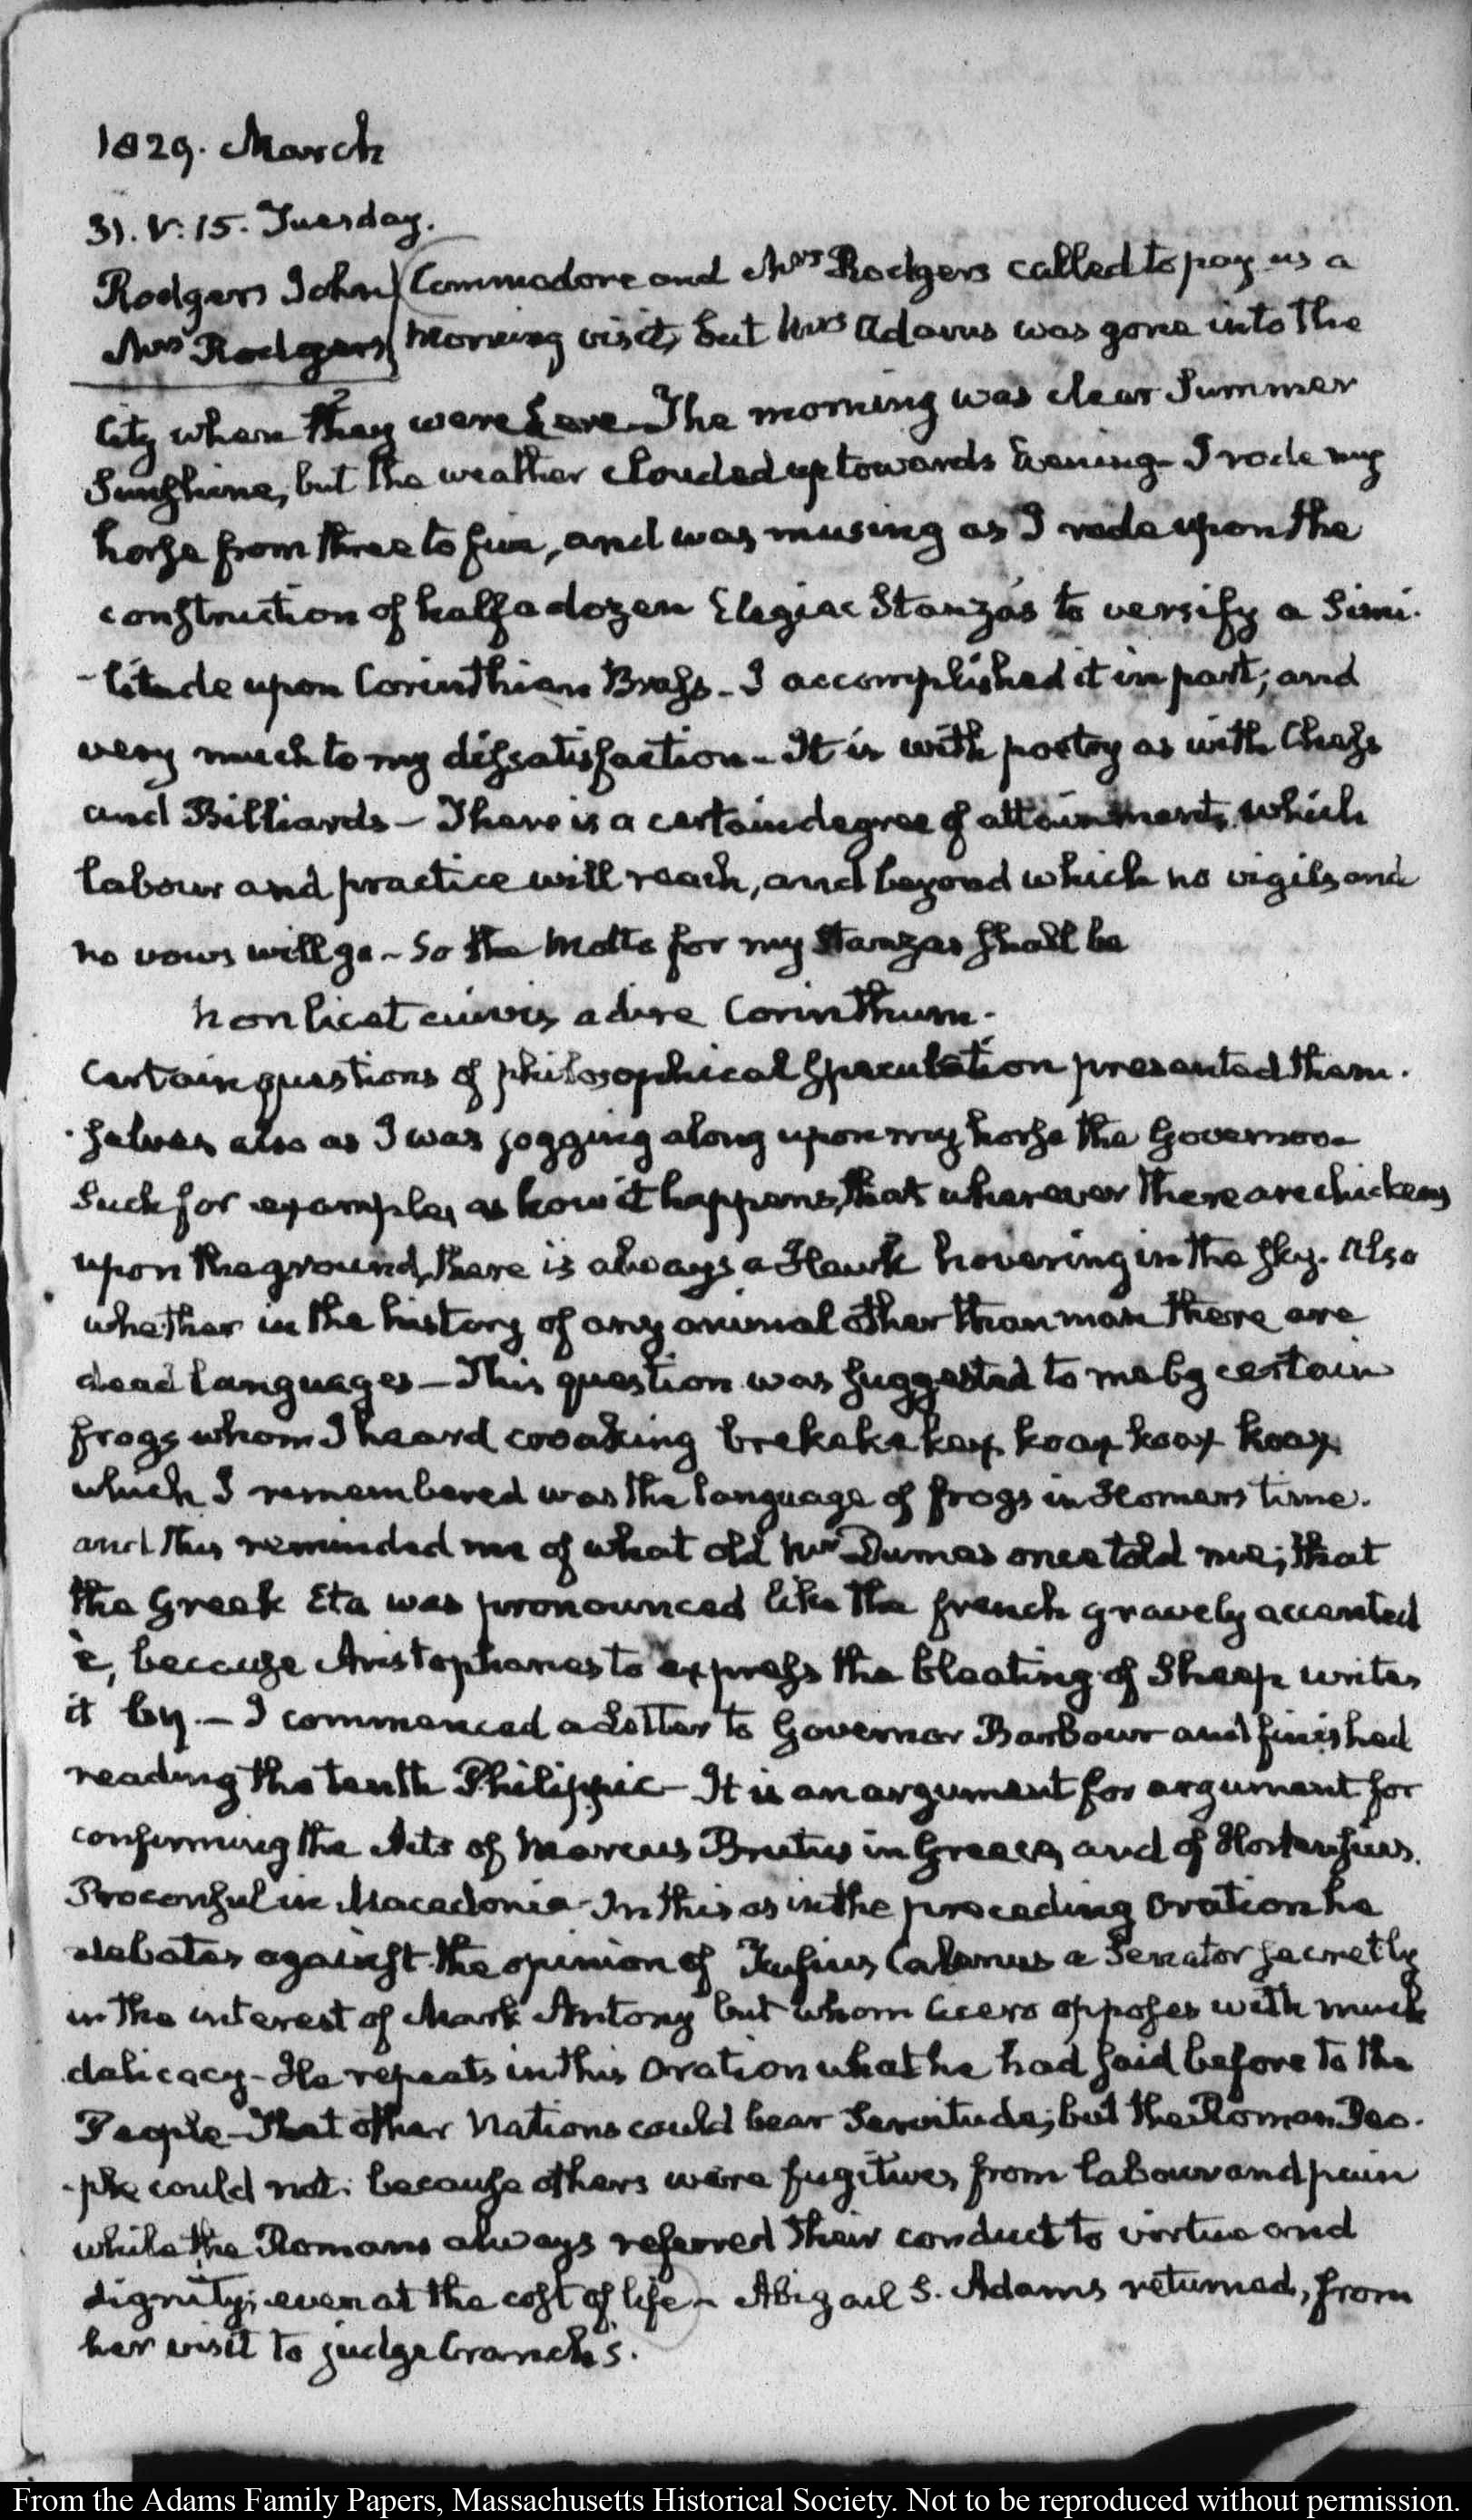 1829. March
31. V:15. Tuesday.
Rodgers John Commodore and Mrs Rodgers called to pay us a
Mrs Rodgers morning visit, but Mrs Adams was gone into the
2
City when they were here. The morning was clear Summer
Sunshine, but the weather clouded up towards Evening- I rode my
horse from three to five, and was musing as I rode upon the
construction of half a dozen Elegiac Stanzas to versify a Simi-
-litude upon Corinthian Brass- I accomplished it in part; and
very much to my dissatisfaction- It is with poetry as with Chess
and Billiards- There is a certain degree of attainment, which
labour and practice will reach, and beyond which no vigils and
no vows will go- So the Motto for my Stanzas shall be
Non licet cuivis adire Corinthum.
Certain questions of philosophical speculation presented them-
-selves also as I was jogging along upon my horse the Governor-
Such for example, as how it happens, that wherever there are chickens
upon the ground, there is always a Hawk hovering in the sky. Also
whether in the history of any animal other than man there are
dead languages- This question was suggested to me by certain
frogs whom I heard croaking brekekekex koax koax koax
which I remembered was the language of frogs in Homers time.
and this reminded me of what old Mr Dumas once told me; that
the Greek Eta was pronounced like the french gravely accented
è, because Aristophanes to express the bleating of Sheep writes
it βη.- I commenced a Letter to Governor Barbour and finished
reading the tenth Philippic- It is an argument for argument for
confirming the Acts of Marcus Brutus in Greece, and of Hortensius
Proconsul in Macedonia- In this as in the preceding Oration he
debates against the opinion of Fufius Calenus a Senator secretly
in the interest of Mark Antony but whom Cicero opposes with much
delicacy- He repeats in this Oration what he had said before to the
People- That other Nations could bear Servitude; but the Roman Peo-
-ple could not; because others were fugitives from labour and pain
while the Romans always referred their conduct to virtue and
dignity; even at the cost of life- Abigail S. Adams returned, from
her visit to judge Cranch's.
From the Adams Family Papers, Massachusetts Historical Society. Not to be reproduced without permission.